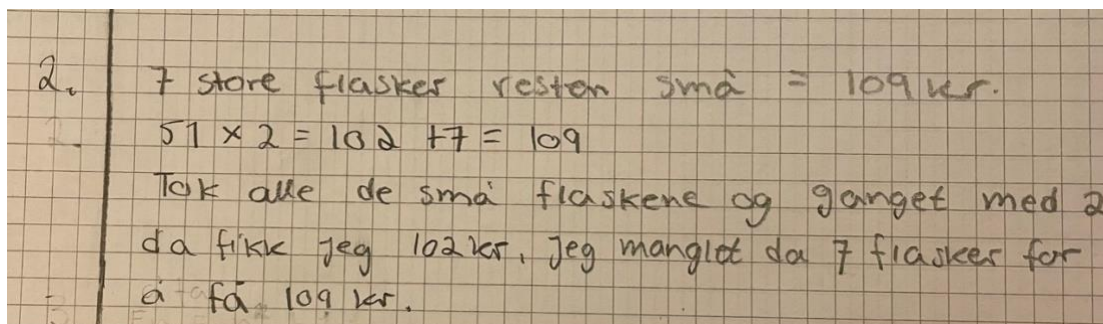 2. 7 store flasker resten små = 109 kr.
51 × 2 = 102 + 7 = 109
Tok alle de små flaskene og ganget med 2
da fikk jeg 102 kr, jeg manglet da 7 flasker for
å få 109 kr.